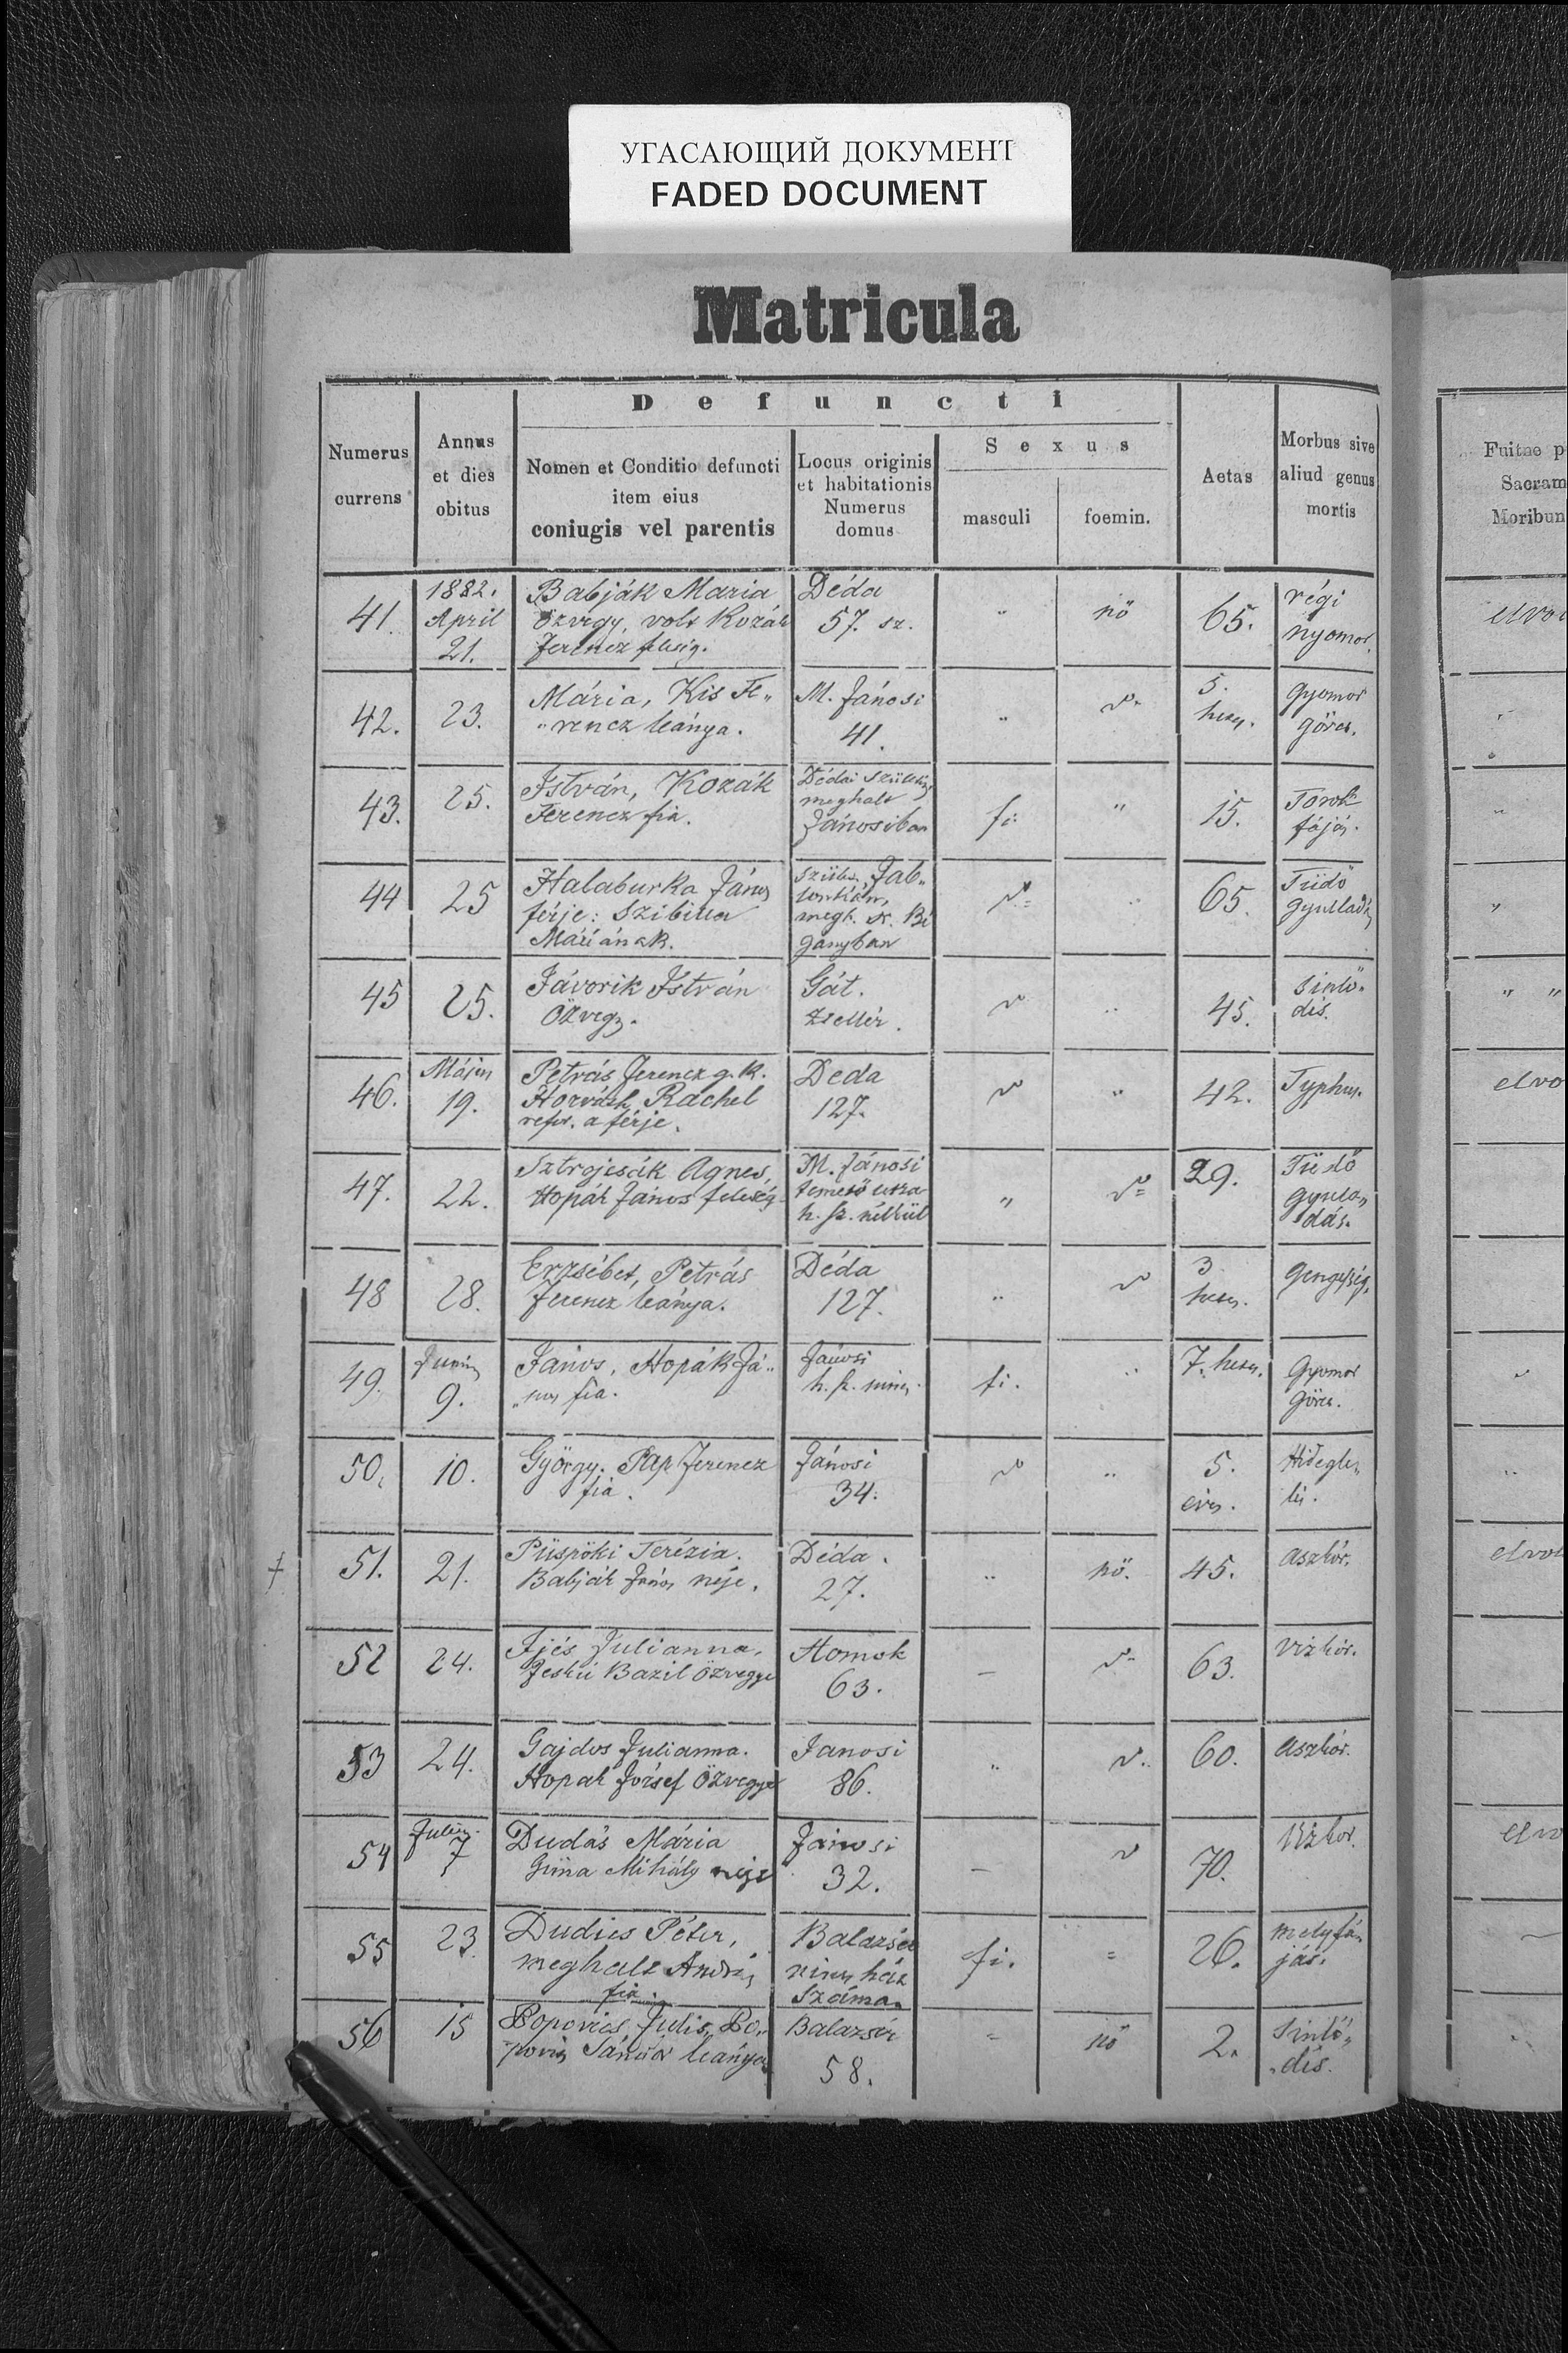 УГАСАЮЩИЙ ДОКУМЕНТ
FADED DOCUMENT
Matricula
Numerus currens
Annus et dies obitus
Defuncti
Nomen et Conditio defuncti
item eius
coniugis vel parentis
Locus originis
et habitationis
Numerus
domus
Sexus
masculi
foemin.
Aetas
Morbus sive
aliud genus
mortis
Fuitne p
Sacram
Moribun
41. 1882. April 21. Babják Maria özvegy, volt Kozák Ferencz feleség. Déda 57. sz. " nő 65. régi nyomor.
42. 23. Mária, Kis Fe„ „rencz leánya. M. Jánosi 41. " 5. hetes. gyomor görcs.
43. 25. István, Kozák Ferencz fia. Dédai meghalt Jánosiban fi " 15. Torok fájás.
44 25 Halaburka János férje: Máriának. megh. k. Bé gányban 65. Tüdő gyulladás
45 25. Jávorik István özvegy. Gát. zsellér. 45. sinlő- dés.
46. Május 19. Petrás Ferencz g. k. Horváth Rachel refor. a férje. Deda 127. 42. Typhus.
47. 22. Agnes, Hopák János feleség M. Jánosi temető utza h. sz. nélkül " 29. Tüdő gyula„ dás.
48 28. Erzsébet, Petrás Ferencz leánya. Déda 127. 3 hetes. gyengeség.
49. Junius 9. János, Hopák Já„ „nos fia. Jánosi h. sz. nincs. fi. 7. hetes. Gyomor görcs.
50. 10. György. Pap Ferencz fia. Jánosi 34. 5. éves. Hidegle„ lés.
51. 21. Püspöki Terézia. Babják János néje. Déda. 27. " nő. 45. aszkór.
52 24. Julianna, Bazil özvegye Homok 63. - 63. vizkór.
53 24. Gajdos Julianna. Hopak József özvegye Janosi 86. " 60. aszkór.
54 Julius. 7 Dudás Mária Mihály neje Jánosi 32. - 70. Vizkor.
55 23. Dudics Péter, meghalt András fia. Balazsér nincs ház száma. fi. = 26. melyfá„ jás.
56 15 Popovics Julis, Po„ povis Sándor leánya Balazsér 58. = nő 2. Sinlő„ „dés.
elvo
elvo